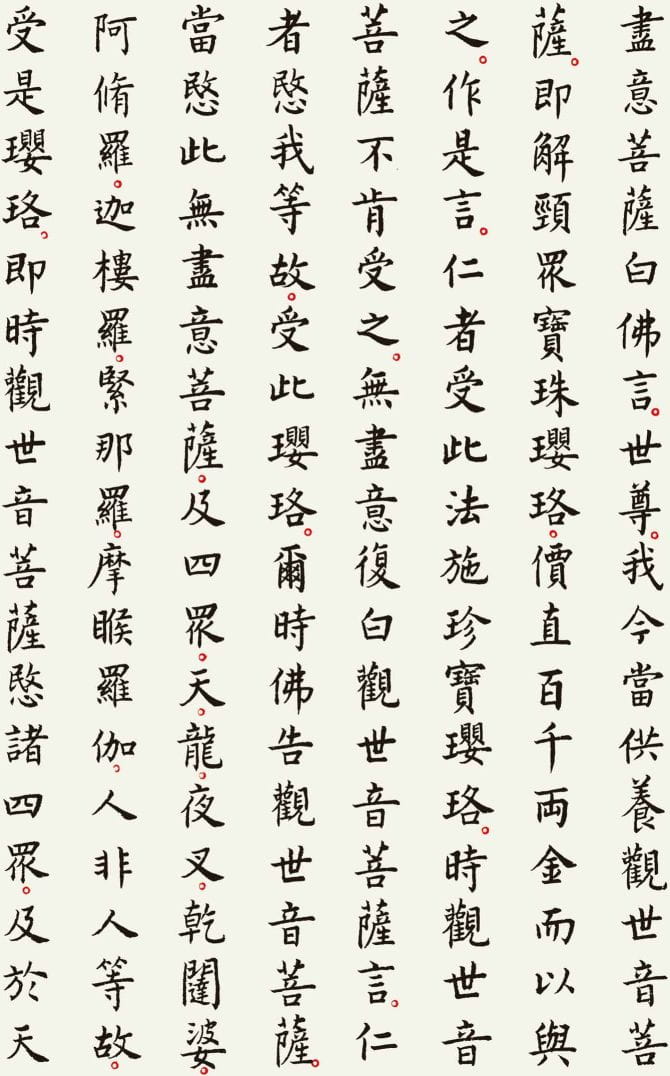 盡意菩薩白佛言。世尊。我今當供養觀世音菩
薩。即解頸眾寶珠瓔珞。價直百千兩金而以與
之。作是言。仁者受此法施珍寶瓔珞。時觀世音
菩薩不肯受之。無盡意復白觀世音菩薩言。仁
者愍我等故。受此瓔珞。爾時佛告觀世音菩薩。
當愍此無盡意菩薩。及四眾。天。龍。夜叉。乾闥婆。
阿脩羅。迦樓羅。緊那羅。摩睺羅伽。人非人等故。
受是瓔珞。即時觀世音菩薩愍諸四眾。及於天